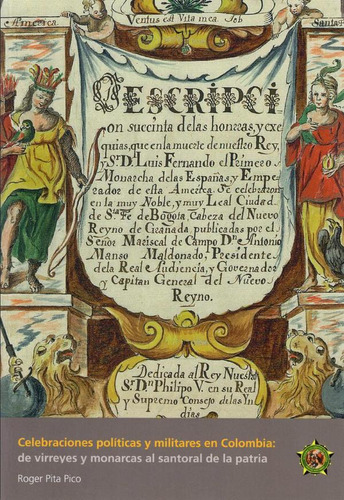 Ventus est Vita mea. Job
America
Santa
Descripci
on succinta de las honrras, y exe
quias, que en la muerte de nuestro Rey,
y Sr. Dn. Luis Fernando el Primero
Monarcha de las Españas, y Empe
rador de esta America. Se celebraron
en la muy Noble, y muy Leal Ciudad
de Stafe de Bogotà, Cabeza del Nuevo
Reyno de Granada, publicadas por el
Señor Mariscal de Campo Dn. Antonio
Manso Maldonado, Presidente
de la Real Audiencia, y Governador
y Capitan General del Nuevo
Reyno.
Dedicada al Rey Nuestro
Sr. Dn. Philipo V. en su Real
y Supremo Consejo de las Yn
dias
Celebraciones políticas y militares en Colombia:
de virreyes y monarcas al santoral de la patria
Roger Pita Pico